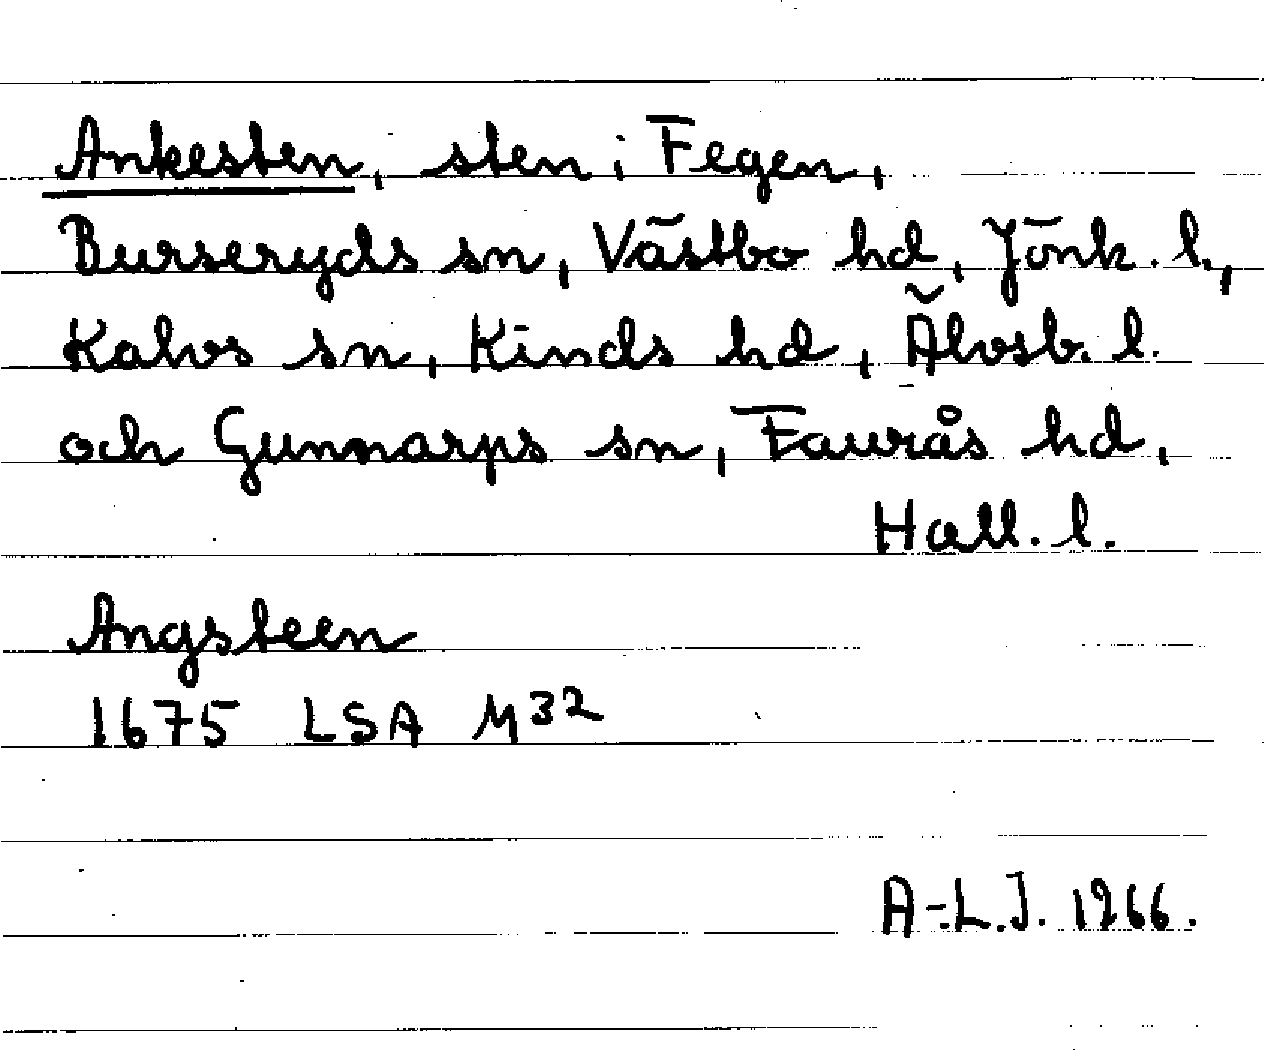 Ankesten, sten i Fegen,
Burseryds sn, Västbo hd, Jönk. l.,
Kalvs sn, Kinds hd, Älvsb. l.
och Gunnarps sn, Faurås hd,
Hall. l.
Angsteen
1675 LSA M32
A-L.J. 1966.